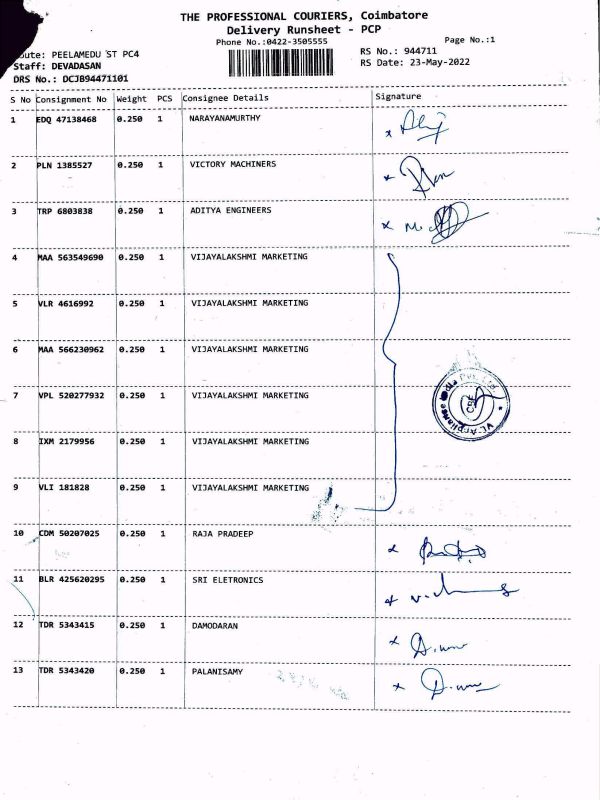 THE PROFESSIONAL COURIERS, Coimbatore
Delivery Runsheet - PCP
Phone No.:0422-3505555
Page No.:1
oute: PEELAMEDU ST PC4
RS No.: 944711
Staff: DEVADASAN
RS Date: 23-May-2022
DRS No.: DCJB94471101
S No Consignment No Weight PCS Consignee Details Signature
1 EDQ 47138468 0.250 1 NARAYANAMURTHY
2 PLN 1385527 0.250 1 VICTORY MACHINERS
3 TRP 6803838 0.250 1 ADITYA ENGINEERS
4 MAA 563549690 0.250 1 VIJAYALAKSHMI MARKETING
5 VLR 4616992 0.250 1 VIJAYALAKSHMI MARKETING
6 MAA 566230962 0.250 1 VIJAYALAKSHMI MARKETING
7 VPL 520277932 0.250 1 VIJAYALAKSHMI MARKETING
8 IXM 2179956 0.250 1 VIJAYALAKSHMI MARKETING
9 VLI 181828 0.250 1 VIJAYALAKSHMI MARKETING
10 CDM 50207025 0.250 1 RAJA PRADEEP
11 BLR 425620295 0.250 1 SRI ELETRONICS
12 TDR 5343415 0.250 1 DAMODARAN
13 TDR 5343420 0.250 1 PALANISAMY